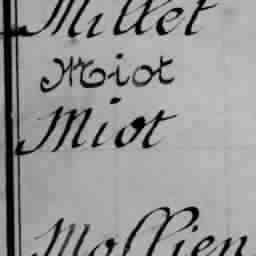 Millet
Miot
Miot
Mollien